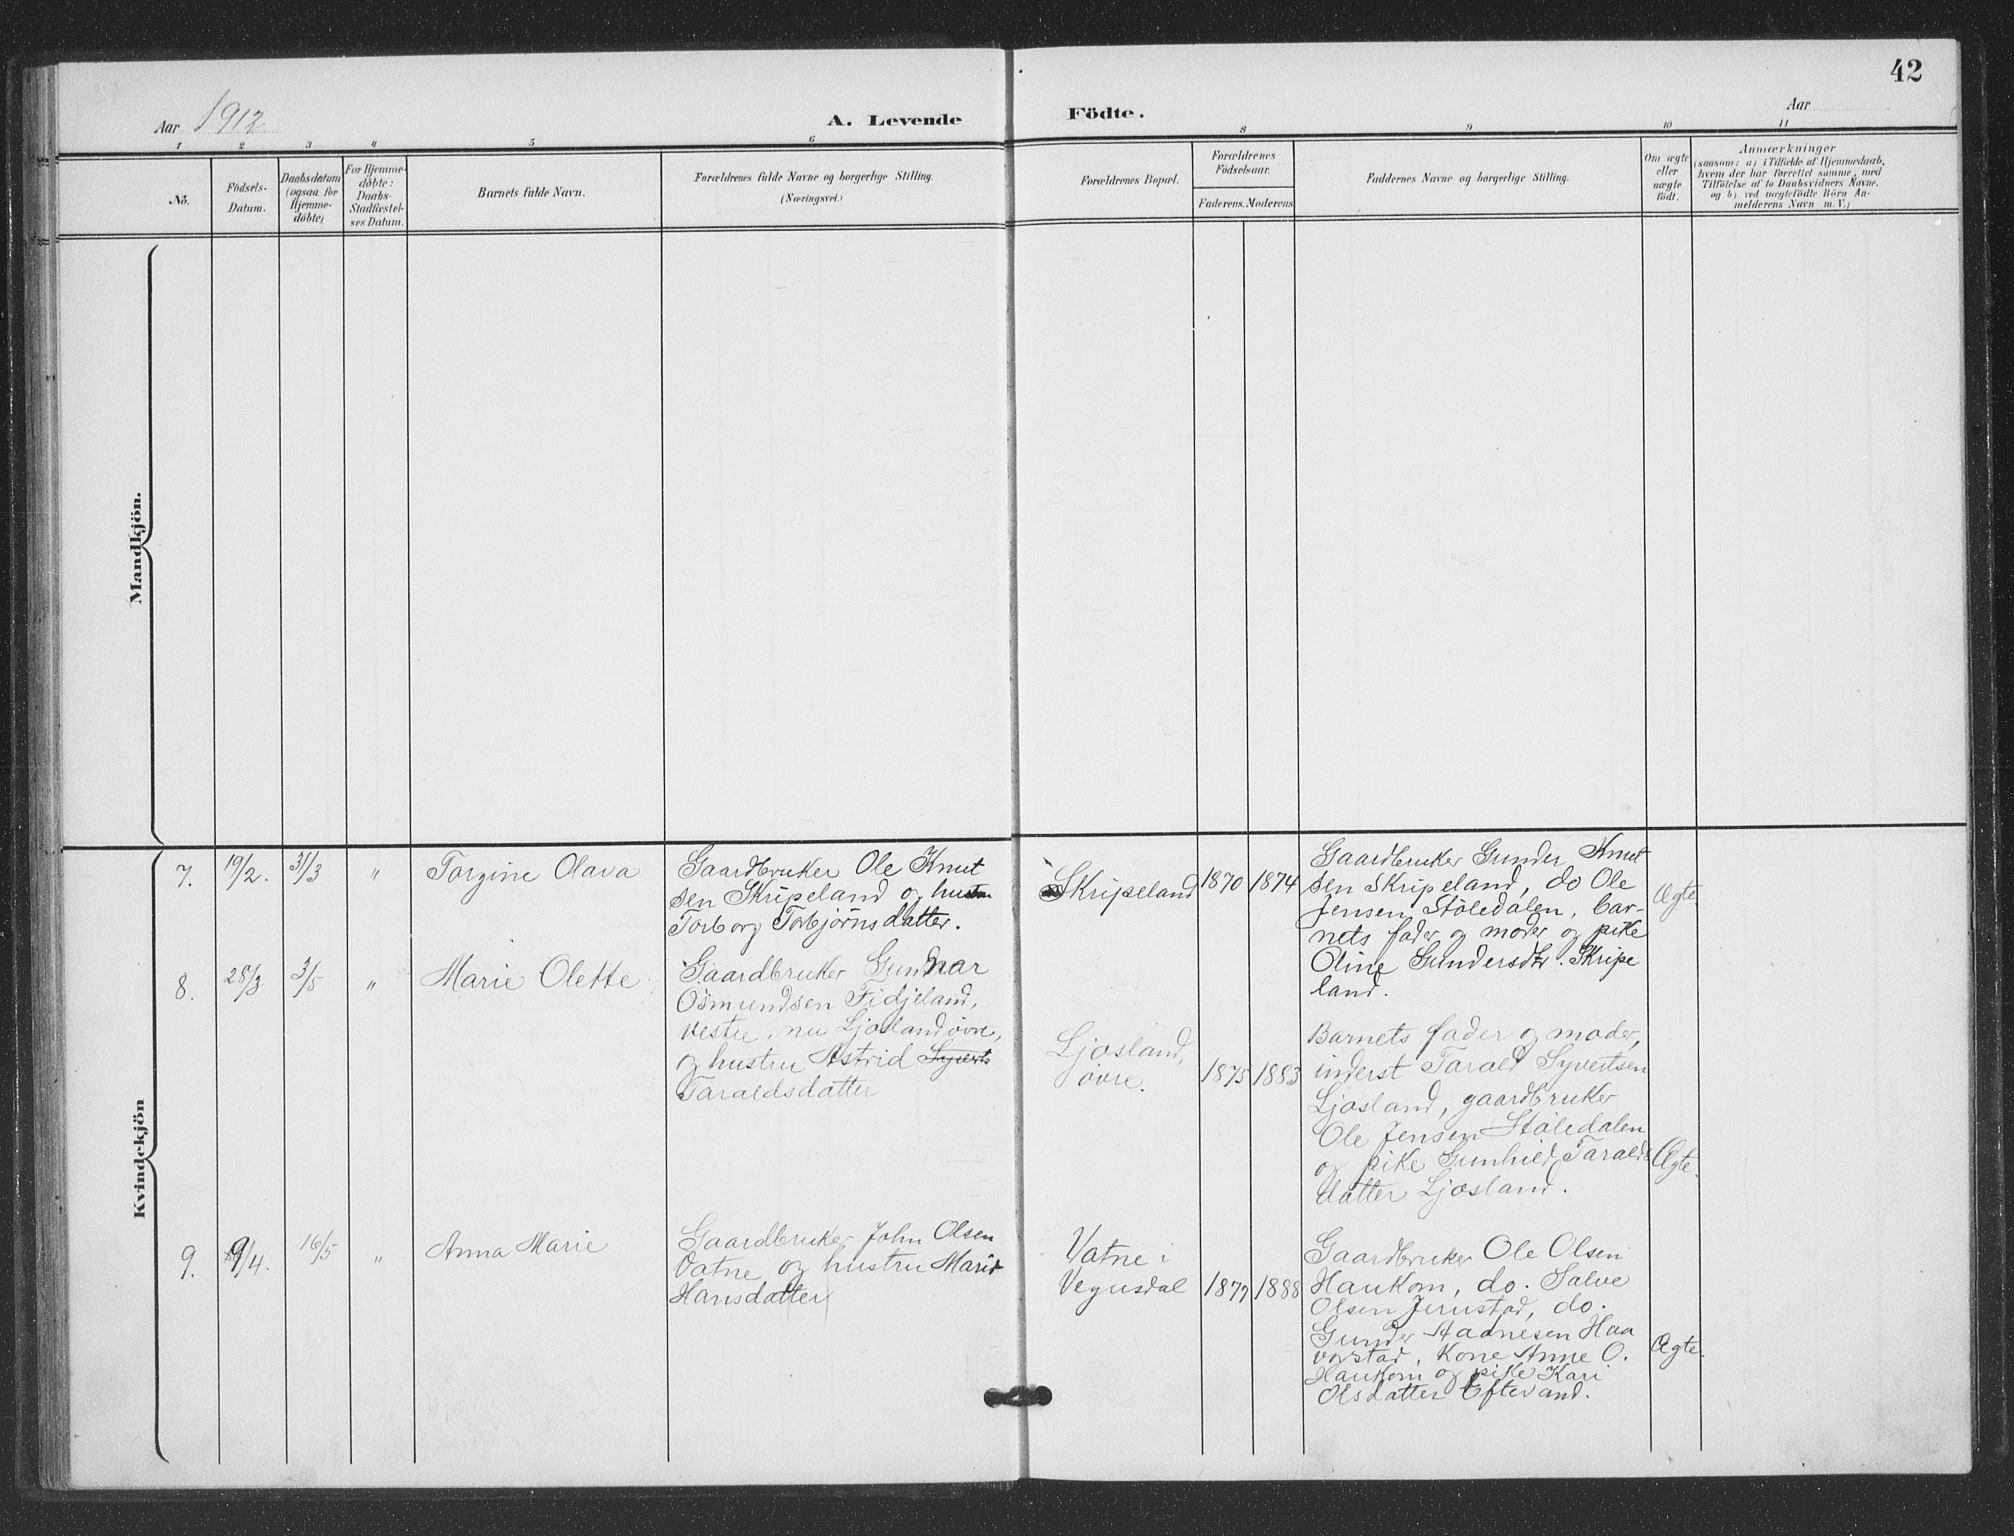 42
Aar 1912
A. Levende Födte.
Aar
1 2 3 4 5 6 8 9 10 11
No.
Födsels-
Datum.
Daabsdatum
(ogsaa for
Hjemme-
döbte)
For Hjemme-
döbte:
Daabs-
Stadfæstel-
ses Datum.
Barnets fulde Navn.
Forældrenes fulde Navne og borgerlige Stilling.
(Næringsvei.)
Forældrenes Bopæl.
Forældrenes
Födselsaar.
Faderens. Moderens.
Faddernes Navne og borgerlige Stilling.
Om ægte
eller
uægte
födt.
Anmærkninger
(saasom: a) i Tilfælde af Hjemmedaab,
hvem der har forrettet samme, med
Tilföielse af to Daabsvidners Navne.
og b) ved uægtefödte Börn An-
melderens Navn m. V.)
Mandkjön.
Kvindekjön
7. 19/2. 31/3 " Torgine Olava
Gaardbruker Ole Knut
sen Skripeland og hustru
Torborg Torbjörnsdatter.
Skripeland 1870 1874
Gaardbruker Gunder Knut
sen Skripeland, do Ole
Jensen Stöledalen, bar-
nets fader og moder og pike
Oline Gundersdtr. Skripe
land.
Ægte.
8. 28/3 3/5 " Marie Olette
Gaardbruker Gunnar
Osmundsen Fidjeland,
vestre, nu Ljosland övre,
og hustru Astrid Syverts
Taraldsdatter
Ljosland,
övre.
1875 1883
Barnets fader og moder,
inderst Tarald Syvertsen
Ljosland, gaardbruker
Ole Jensen Stöledalen
og pike Gunhild Taralds
datter Ljosland.
Ægte.
9. 9/4. 16/5 " Anna Marie
Gaardbruker John Olsen
Vatne og hustru Marie
Hansdatter
Vatne i
Vegusdal
1877 1888
Gaardbruker Ole Olsen
Haukom, do. Salve
Olsen Jerustad, do.
Gunder Aadnesen Haa
verstad, Kone Anne O.
Haukom og pike Kari
Olsdatter Eftevand.
Ægte.